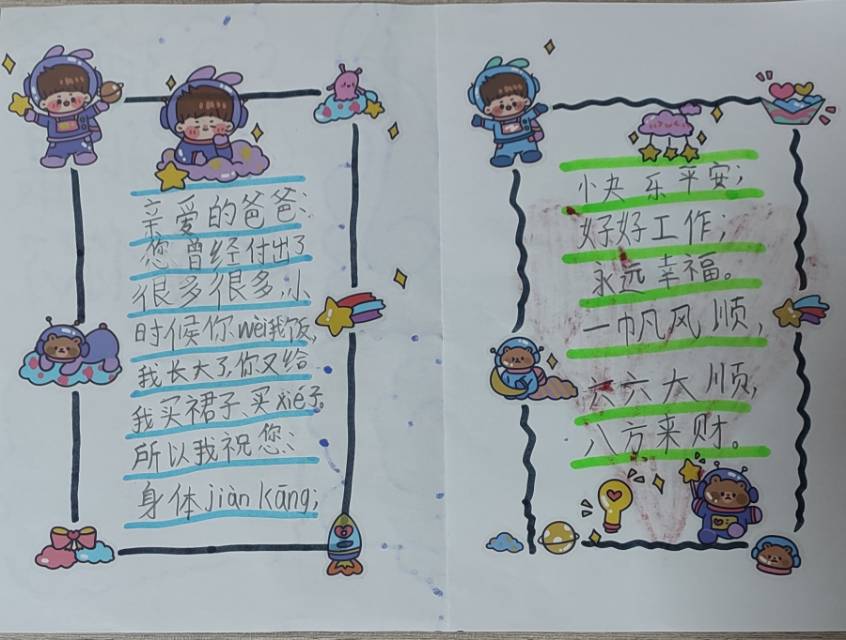 亲爱的爸爸：
您曾经付出了
很多很多，小
时候你wèi我饭，
我长大了，你又给
我买裙子、买xié子。
所以我祝您：
身体jiàn kāng；
小央乐平安；
好好工作；
永远幸福。
一帆风顺，
六六大顺，
八方来财。